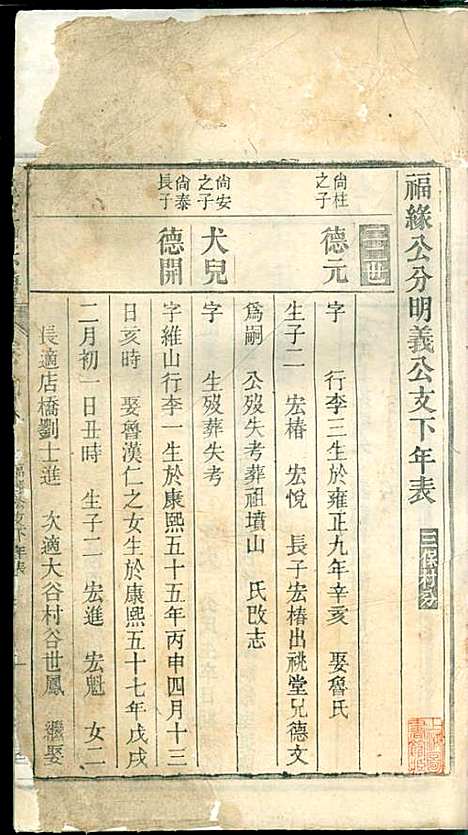 福緣公分明義公支下年表
三保村
世
尙柱
之子
德元
字　行李三生於雍正九年辛亥　娶魯氏
生子二　宏椿　宏悅　長子宏椿出祧堂兄德文
爲嗣　公歿失考葬祖墳山　氏改志
尙安
之子
犬兒
字　生歿葬失考
尙泰
長子
德開
字維山行李一生於康熙五十五年丙申四月十三
日亥時　娶魯漢仁之女生於康熙五十七年戊戌
二月初一日丑時　生子二　宏進　宏魁　女二
長適店橋劉士進　次適大谷村谷世鳳　繼娶
支下年表